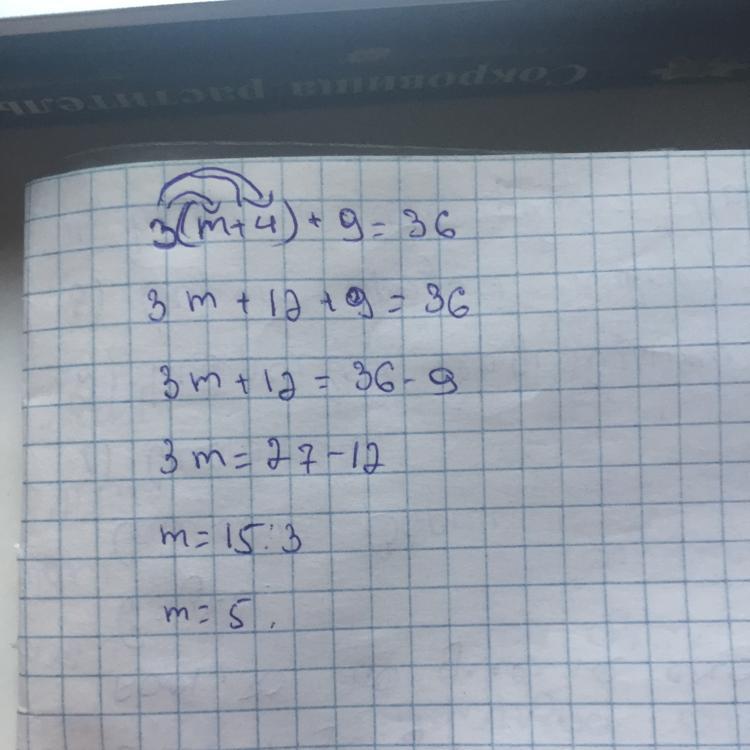 Сокровища растительн
3(m+4) + 9 = 36
3m + 12 + 9 = 36
3m + 12 = 36 - 9
3m = 27 - 12
m = 15 : 3
m = 5.